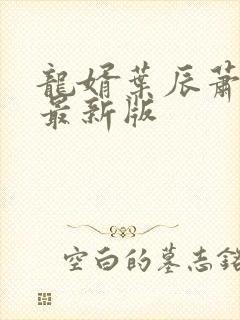 龍婿葉辰蕭
最新版
空白的墓志銘